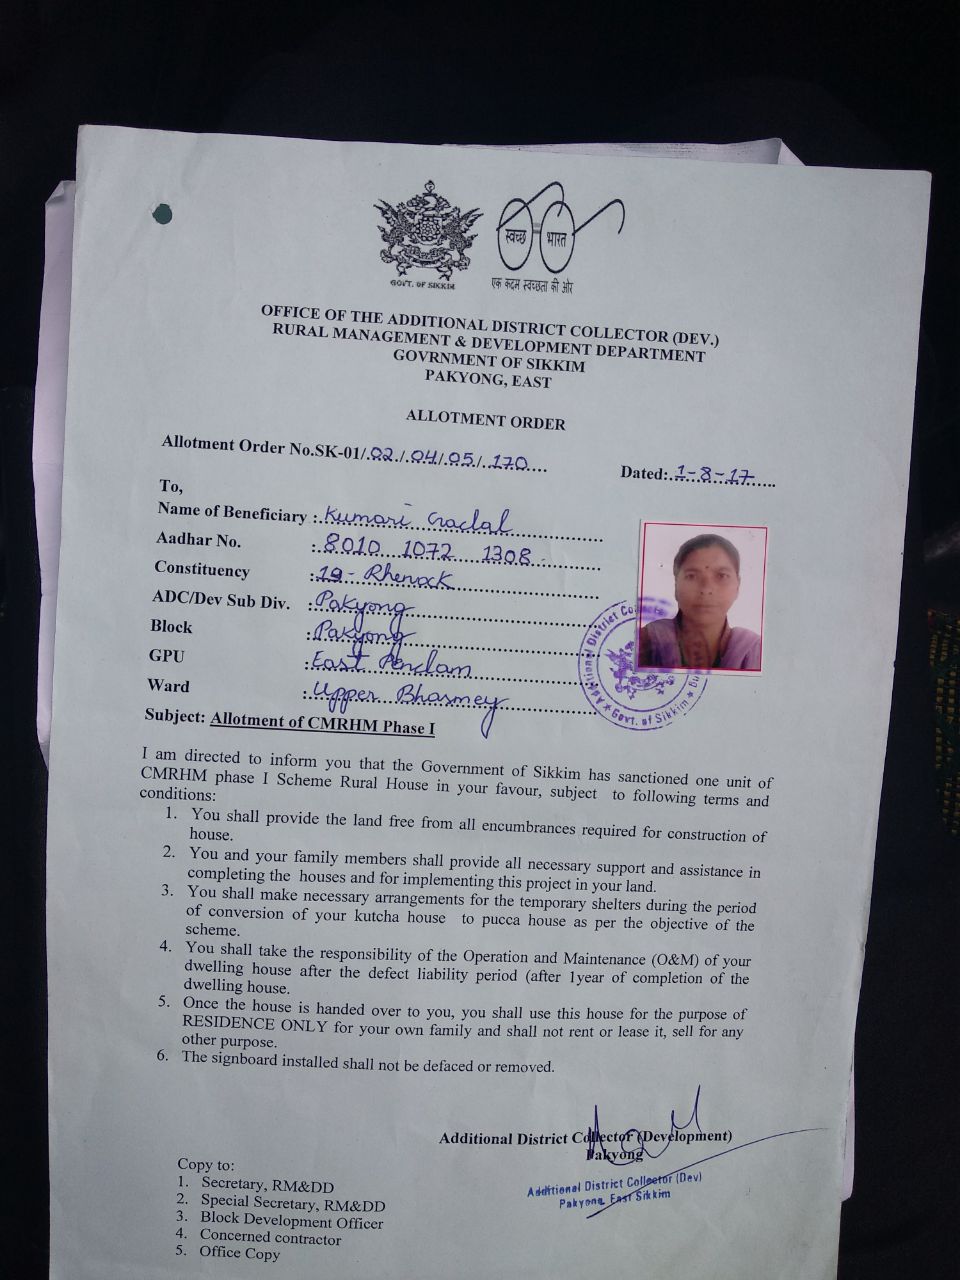 GOVT. OF SIKKIM
स्वच्छ भारत
एक कदम स्वच्छता की ओर
OFFICE OF THE ADDITIONAL DISTRICT COLLECTOR (DEV.)
RURAL MANAGEMENT & DEVELOPMENT DEPARTMENT
GOVRNMENT OF SIKKIM
PAKYONG, EAST
ALLOTMENT ORDER
Allotment Order No.SK-01/.02./.04/.05/.170....
Dated:.1-8-17.....
To,
Name of Beneficiary : Kumari
Aadhar No. : 8010 1072 1308
Constituency : 19-Rhenock
ADC/Dev Sub Div. : Pakyong
Block : Pakyong
GPU : East Pendam
Ward : Upper Bhasmey
Additional District Collector
Govt. of Sikkim
Subject: Allotment of CMRHM Phase I
I am directed to inform you that the Government of Sikkim has sanctioned one unit of
CMRHM phase I Scheme Rural House in your favour, subject to following terms and
conditions:
1. You shall provide the land free from all encumbrances required for construction of
house.
2. You and your family members shall provide all necessary support and assistance in
completing the houses and for implementing this project in your land.
3. You shall make necessary arrangements for the temporary shelters during the period
of conversion of your kutcha house to pucca house as per the objective of the
scheme.
4. You shall take the responsibility of the Operation and Maintenance (O&M) of your
dwelling house after the defect liability period (after 1year of completion of the
dwelling house.
5. Once the house is handed over to you, you shall use this house for the purpose of
RESIDENCE ONLY for your own family and shall not rent or lease it, sell for any
other purpose.
6. The signboard installed shall not be defaced or removed.
Additional District Collector (Development)
Pakyong
Additional District Collector (Dev)
Pakyong, East Sikkim
Copy to:
1. Secretary, RM&DD
2. Special Secretary, RM&DD
3. Block Development Officer
4. Concerned contractor
5. Office Copy